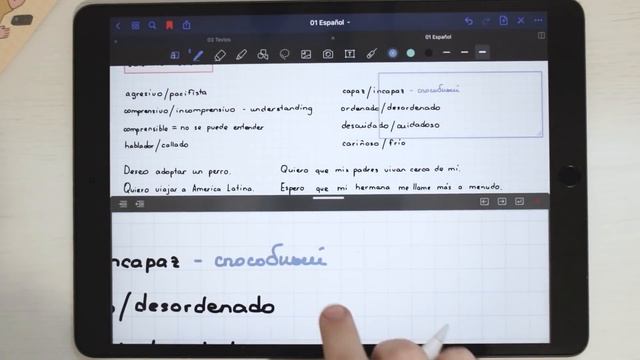 01 Español
03 Textos
01 Español
agresivo/pacifista
comprensivo/incomprensivo - understanding
comprensible = no se puede entender
hablador/callado
capaz/incapaz - способный
ordenado/desordenado
descuidado/cuidadoso
cariñoso/frío
Deseo adoptar un perro.
Quiero que mis padres vivan cerca de mí.
Quiero viajar a America Latina.
Espero que mi hermana me llame más a menudo.
ncapaz - способный
o/desordenado